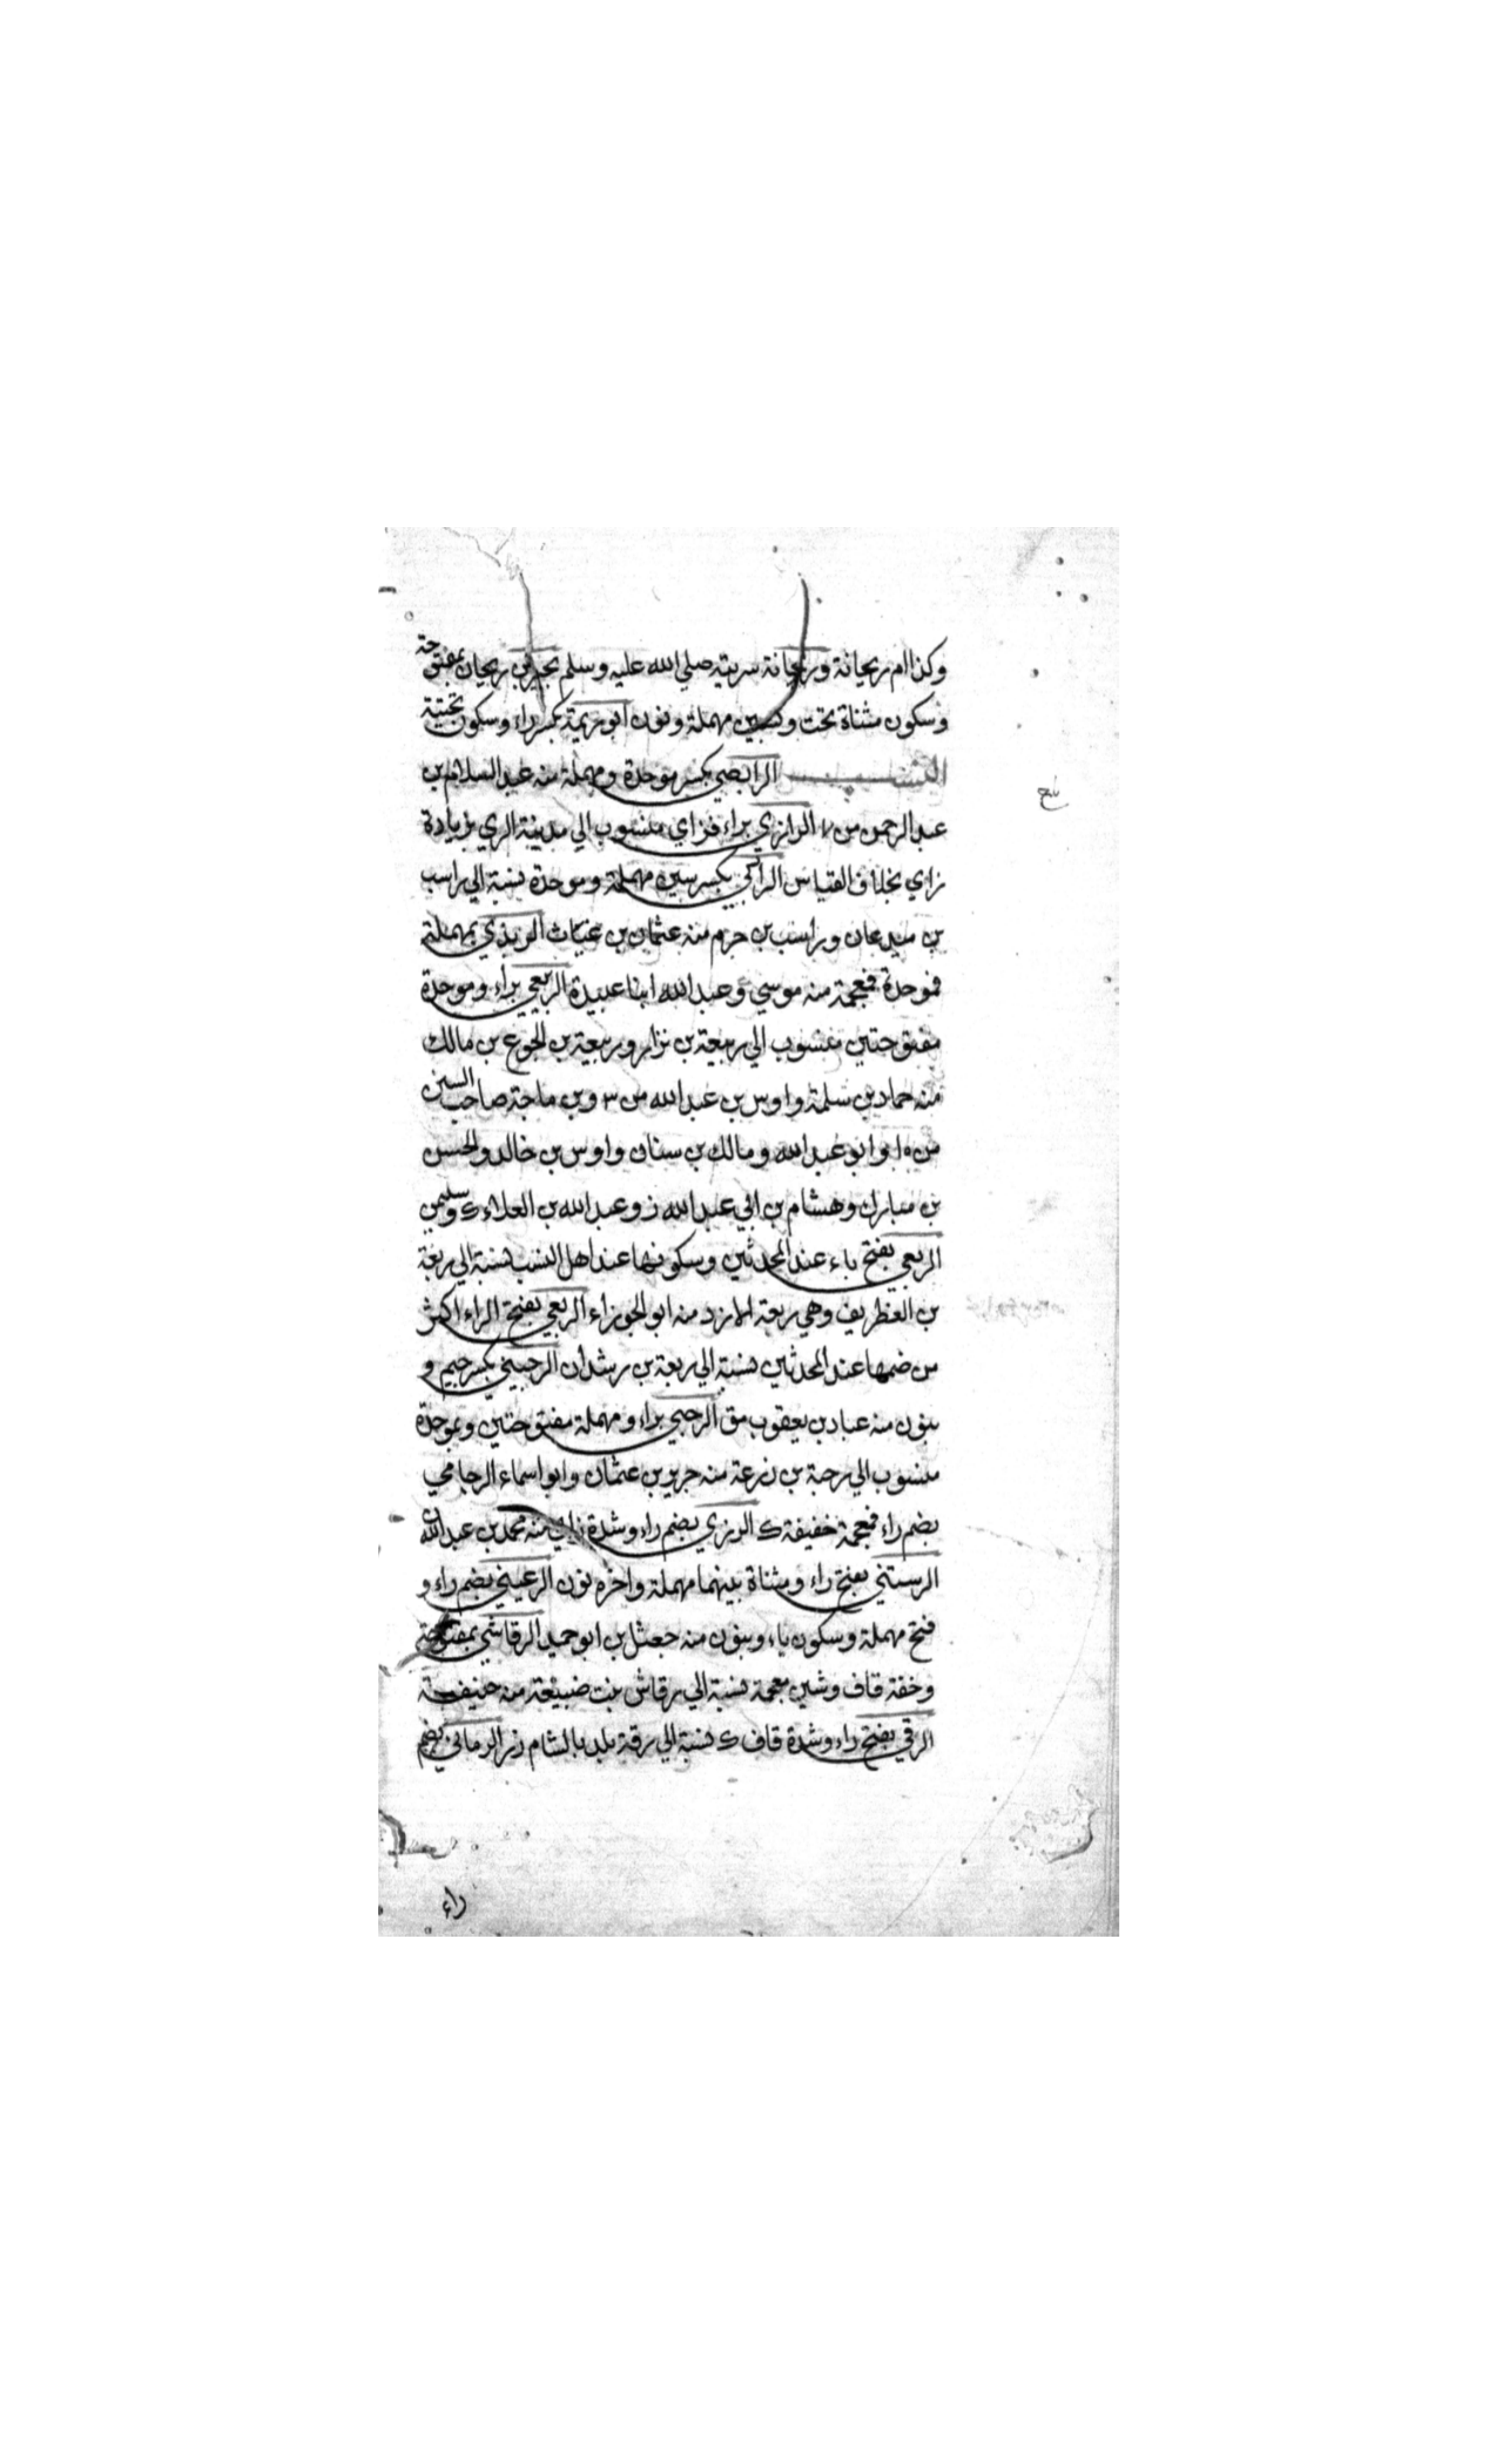 وكذا ام ريحانة وريحانة سريته صلي الله عليه وسلم بن ريحان بمفتوحة
وسكون مثناة تحت مهملة ونون ابو ريمة بكسر راء وسكون تحتية
النسب الرابضي بكسر موحدة ومهملة منه عبد السلام بن
عبد الرحمن من الرازي براء فزاي منسوب الي مدينة الري بزيادة
زاي بخلاف القياس بكسر سين مهملة وموحدة نسبة الي راسب
بن ميدعان وراسب بن جرم منه عثمان بن غياث الربذي بمهملة
فموحدة فمعجمة منه موسي وعبد الله ابنا عبيدة الربعي براء وموحدة
مفتوحتين منسوب الي ربيعة بن نزار وربيعة بن الجوع بن مالك
منه حماد بن سلمة واوس بن عبد الله من ٣ وبن ماجة صاحب السنن
ابو عبد الله ومالك بن سنان واوس بن خالد والحسن
بن مبارك وهشام بن ابي عبد الله ز وعبد الله بن العلاء ك وسليمن
الربعي بفتح باء عند المحدثين وسكونها عند اهل النسب نسبة الي ربعة
بن الغطريف وهي ربعة الازد منه ابو الجوزاء الربعي بفتح الراء اكثر
من ضمها عند المحدثين نسبة الي ربعة بن رشدان الرجيني بكسر جيم و
بنون منه عباد بن يعقوب مق الرحبي براء ومهملة مفتوحتين وبموحدة
منسوب الي رحبة بن زرعة منه حريز بن عثمان وابو اسماء الرخامي
بضم راء فمعجمة خفيفة ك الرزي بضم راء وشدة زاي منه محمد بن عبد الله
الرستني بفتح راء ومثناة بينهما مهملة واخره نون الرعيني بضم راء و
فتح مهملة وسكون ياء وبنون منه جعثل بن ابو حميد الرقاشي بمفتوحة
وخفة قاف وشين معجمة نسبة الي رقاش بنت ضبيعة منه حنيفة
الرقي بفتح راء وشدة قاف ك نسبة الي رقة بلد بالشام زر الرماني بضم
راء